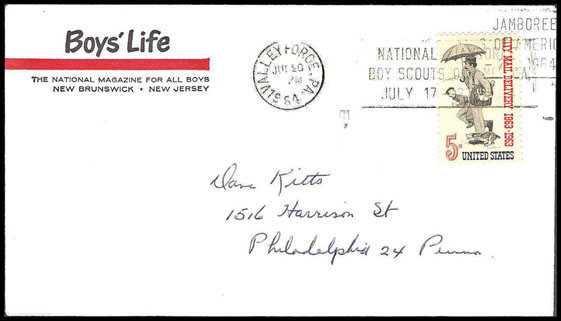 Boys' Life
THE NATIONAL MAGAZINE FOR ALL BOYS
NEW BRUNSWICK • NEW JERSEY
VALLEY FORGE, PA.
PM
1964
JAMBOREE
OF AMERIC
NATIONAL
1964
BOY SCOUTS
JULY 17
CITY MAIL DELIVERY 1863-1963
5c
UNITED STATES
Dave Kitts
1516 Harrison St
Philadelphia 24 Penna.